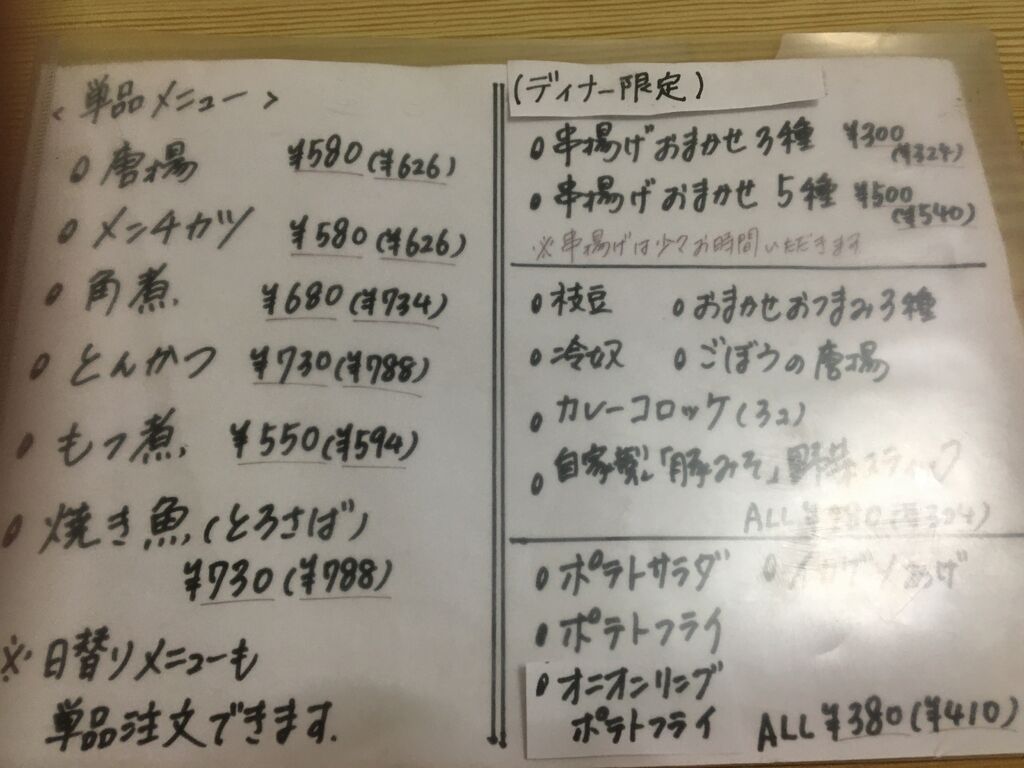 <単品メニュー>
○唐揚 ¥580(¥626)
○メンチカツ ¥580(¥626)
○角煮 ¥680(¥734)
○とんかつ ¥730(¥788)
○もつ煮 ¥550(¥594)
○焼き魚(とろさば)
¥730(¥788)
※日替りメニューも
単品注文できます.
(ディナー限定)
○串揚げおまかせ3種 ¥300
(¥324)
○串揚げおまかせ5種 ¥500
(¥540)
※串揚げは少々お時間いただきます
○枝豆 ○おまかせおつまみ3種
○冷奴 ○ごぼうの唐揚
○カレーコロッケ(3コ)
○自家製「豚みそ」野菜スティック
ALL (¥324)
○ポテトサラダ ○
○ポテトフライ
○オニオンリング
ポテトフライ ALL ¥380(¥410)